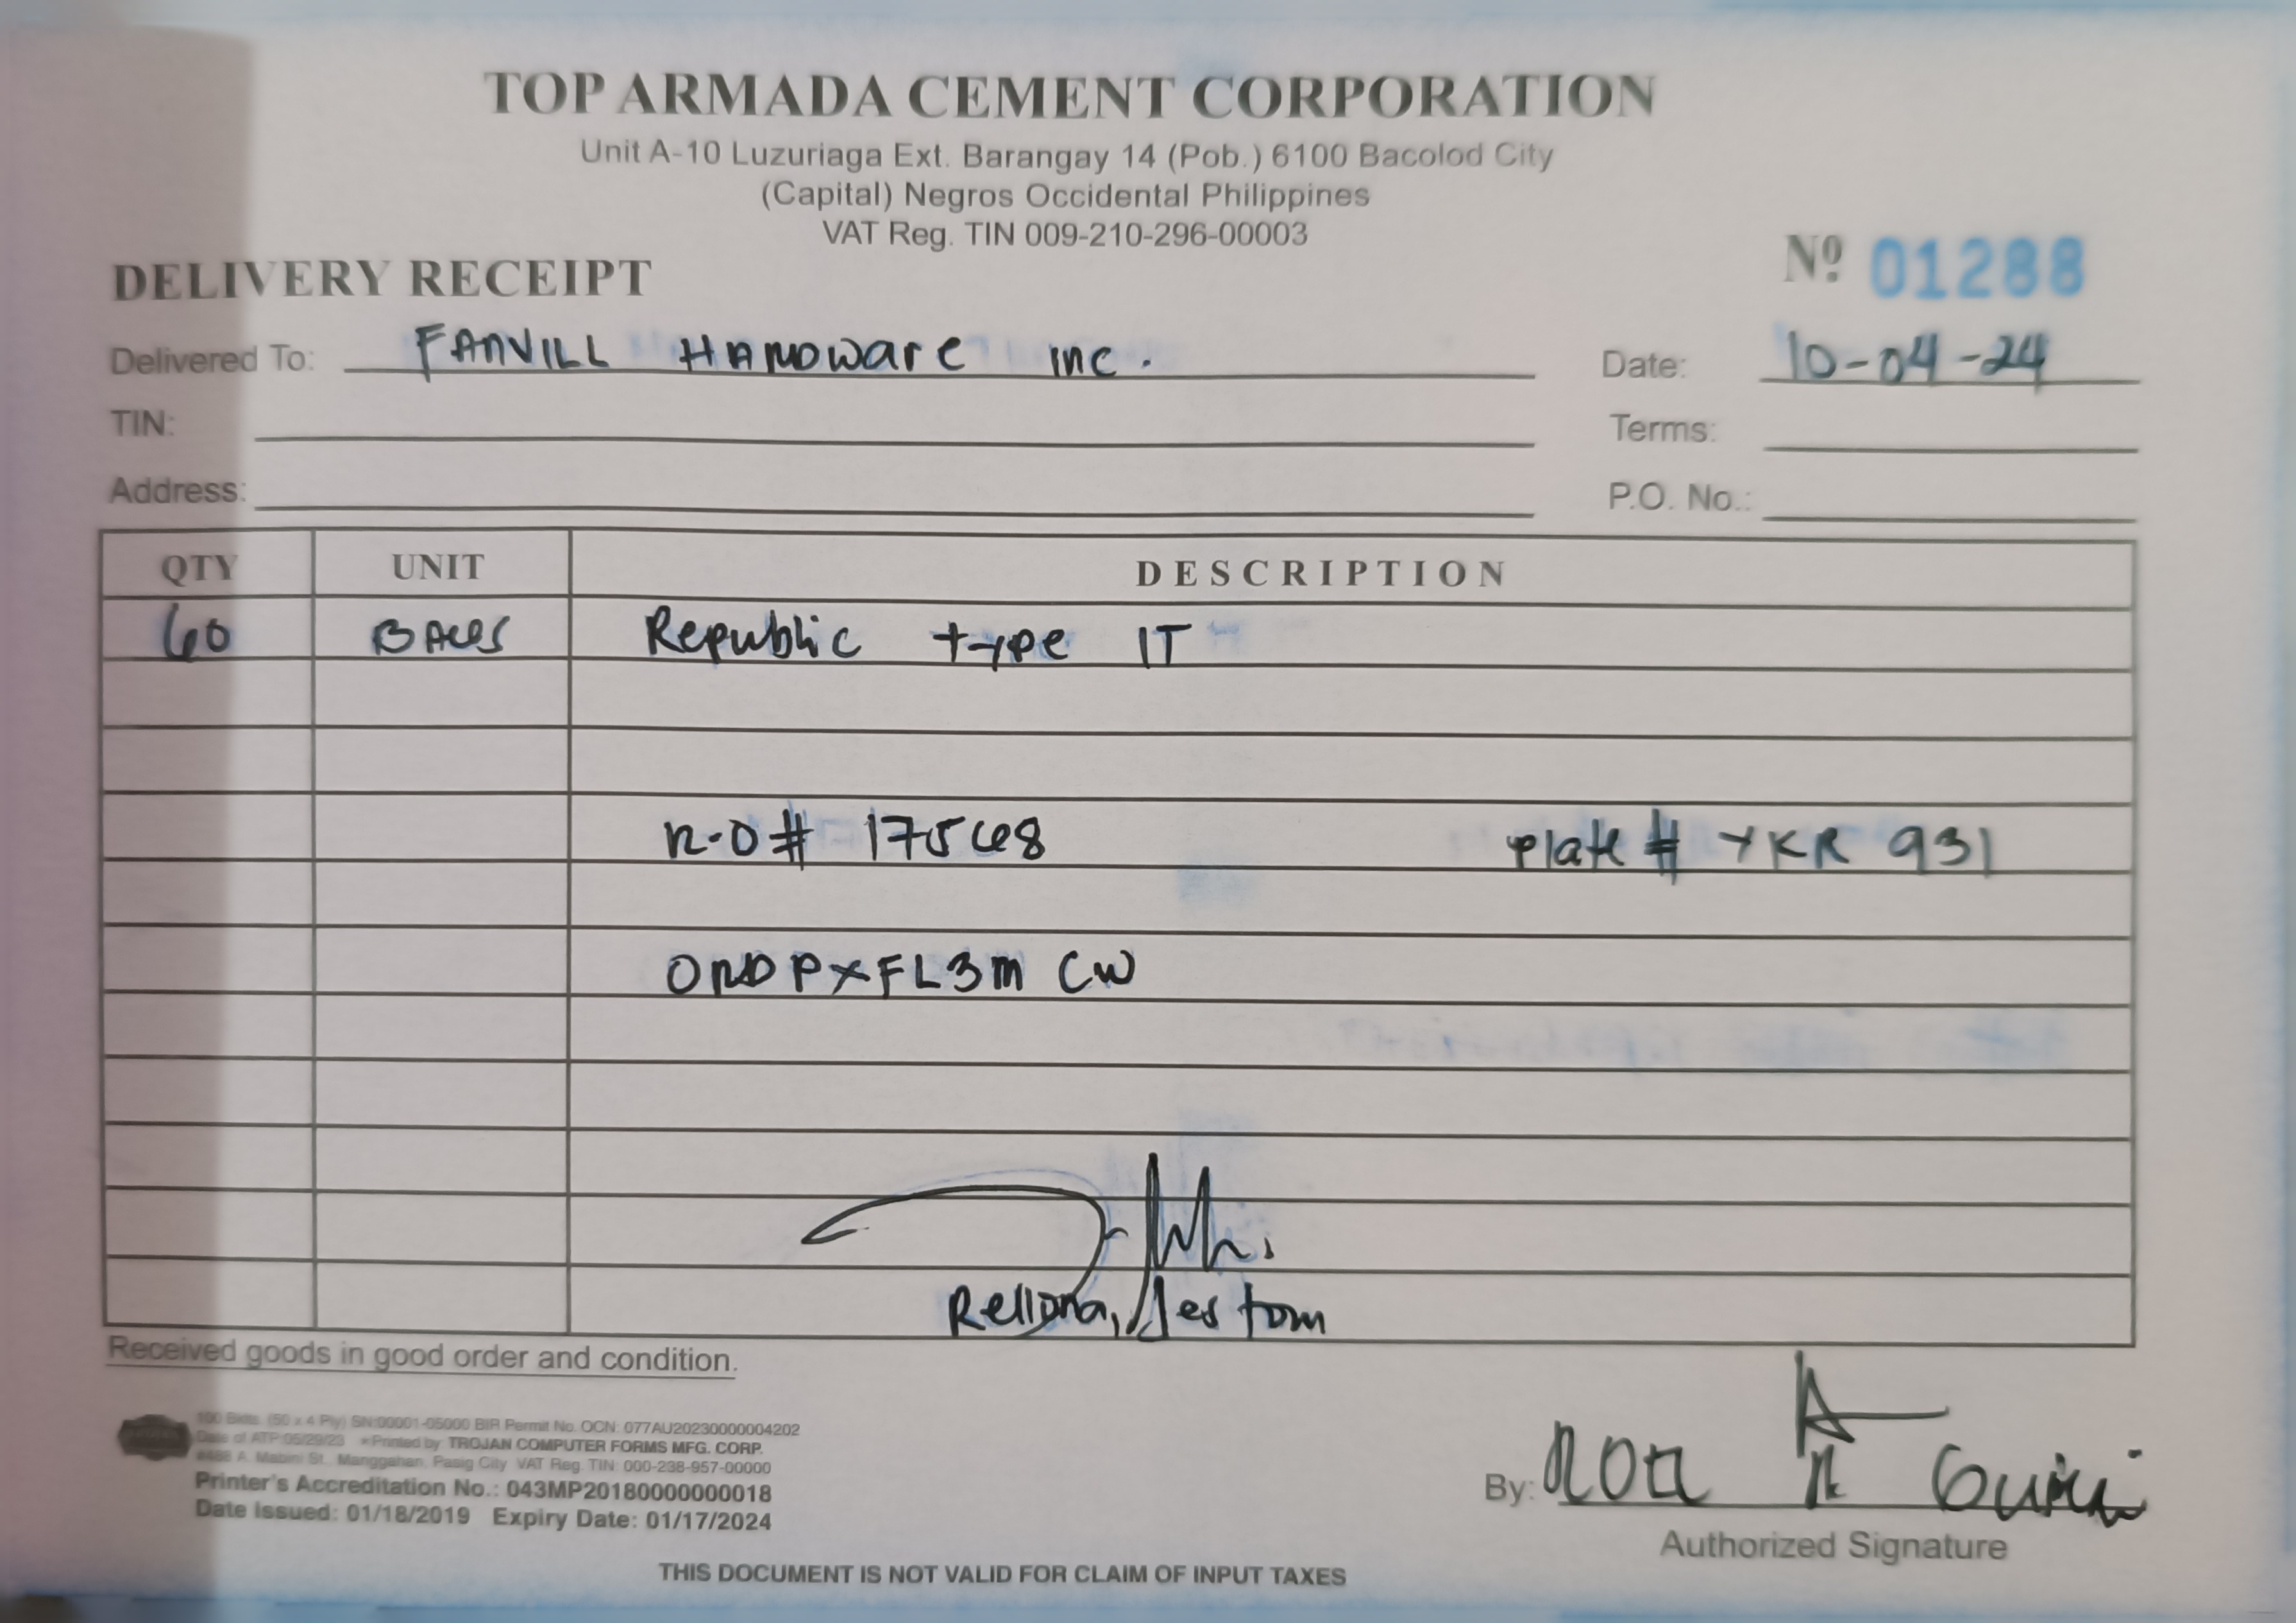 TOP ARMADA CEMENT CORPORATION
Unit A-10 Luzuriaga Ext. Barangay 14 (Pob.) 6100 Bacolod City
(Capital) Negros Occidental Philippines
VAT Reg. TIN 009-210-296-00003
DELIVERY RECEIPT Nº 01288
Delivered To: FANVILL HARDWare Inc. Date: 10-04-24
TIN: Terms:
Address: P.O. No.:
QTY UNIT DESCRIPTION
60 BAGS Republic type 1T
R.O# 175468 Plate # YKR 931
ORDPXFL3M CW
Rellona, Jes tom
Received goods in good order and condition.
100 Bklts. (50 x 4 Ply) SN:00001-05000 BIR Permit No. OCN: 077AU20230000004202
Date of ATP:05/29/23 Printed by TROJAN COMPUTER FORMS MFG. CORP.
A. Mabini St., Manggahan, Pasig City VAT Reg. TIN: 000-238-957-00000
Printer's Accreditation No.: 043MP20180000000018
Date Issued: 01/18/2019 Expiry Date: 01/17/2024
By:
Authorized Signature
THIS DOCUMENT IS NOT VALID FOR CLAIM OF INPUT TAXES